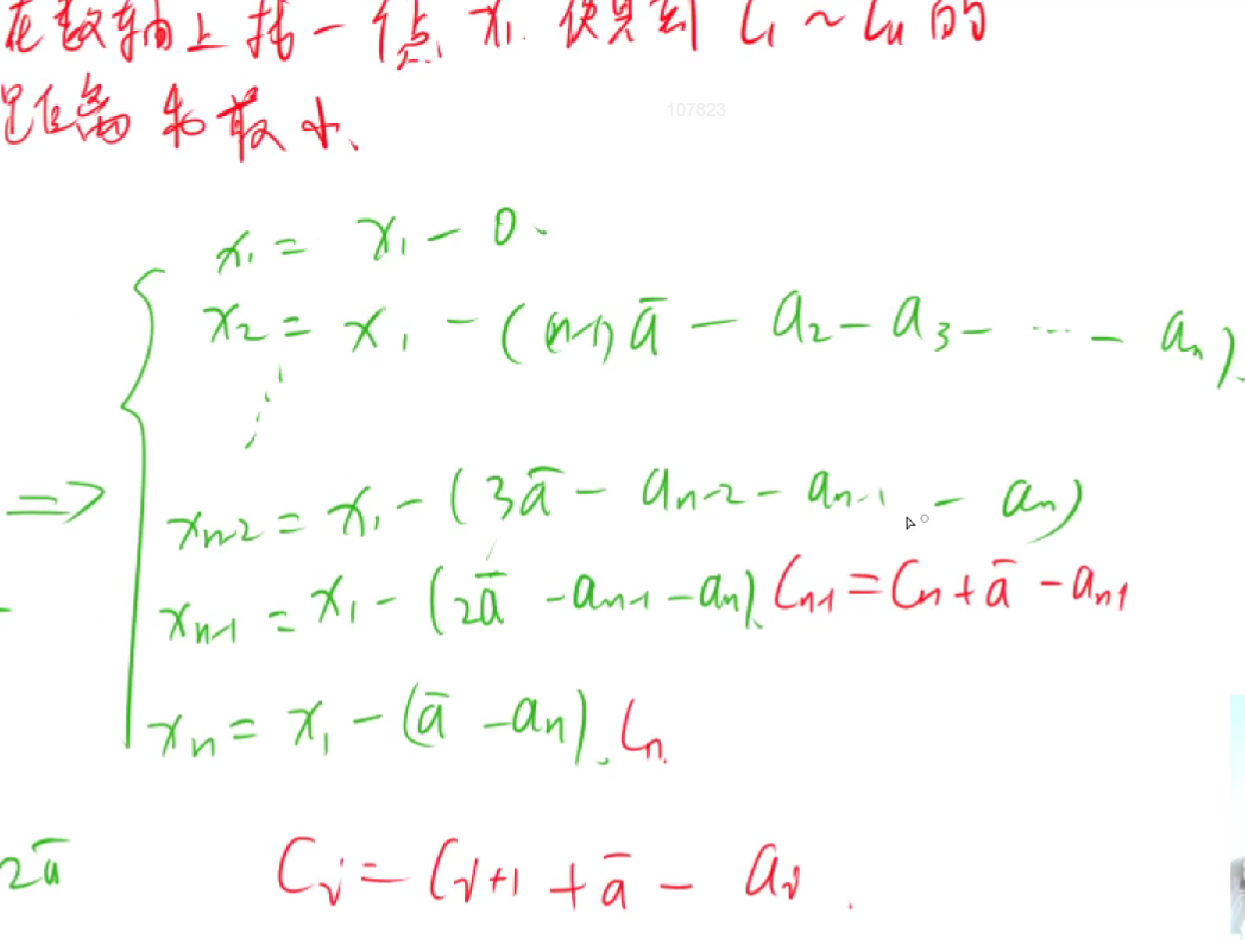 在数轴上找一个点 x₁. 使其到 C₁ ~ Cₙ 的
距离和最小、
107823
x₁ = x₁ - 0.
x₂ = x₁ - ( (n-1) ā - a₂ - a₃ - ... - aₙ ).
=>
xₙ₋₂ = x₁ - ( 3ā - aₙ₋₂ - aₙ₋₁ - aₙ )
xₙ₋₁ = x₁ - ( 2ā - aₙ₋₁ - aₙ ). Cₙ₋₁ = Cₙ + ā - aₙ₋₁
xₙ = x₁ - ( ā - aₙ ). Cₙ.
2ā Cᵢ = Cᵢ₊₁ + ā - aᵢ.